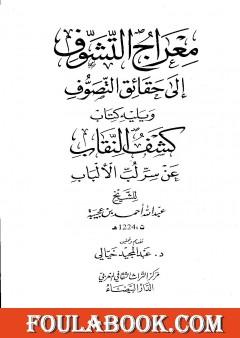 معراج التشوف
إلى حقائق التصوف
ويليه كتاب
كشف النقاب
عن سر لب الألباب
للشيخ
عبد الله أحمد بن عجيبة
ت، 1224 هـ
تقديم وتحقيق
د. عبد المجيد خيالي
مركز التراث الثقافي المغربي
الدار البيضاء
FOULABOOK.COM